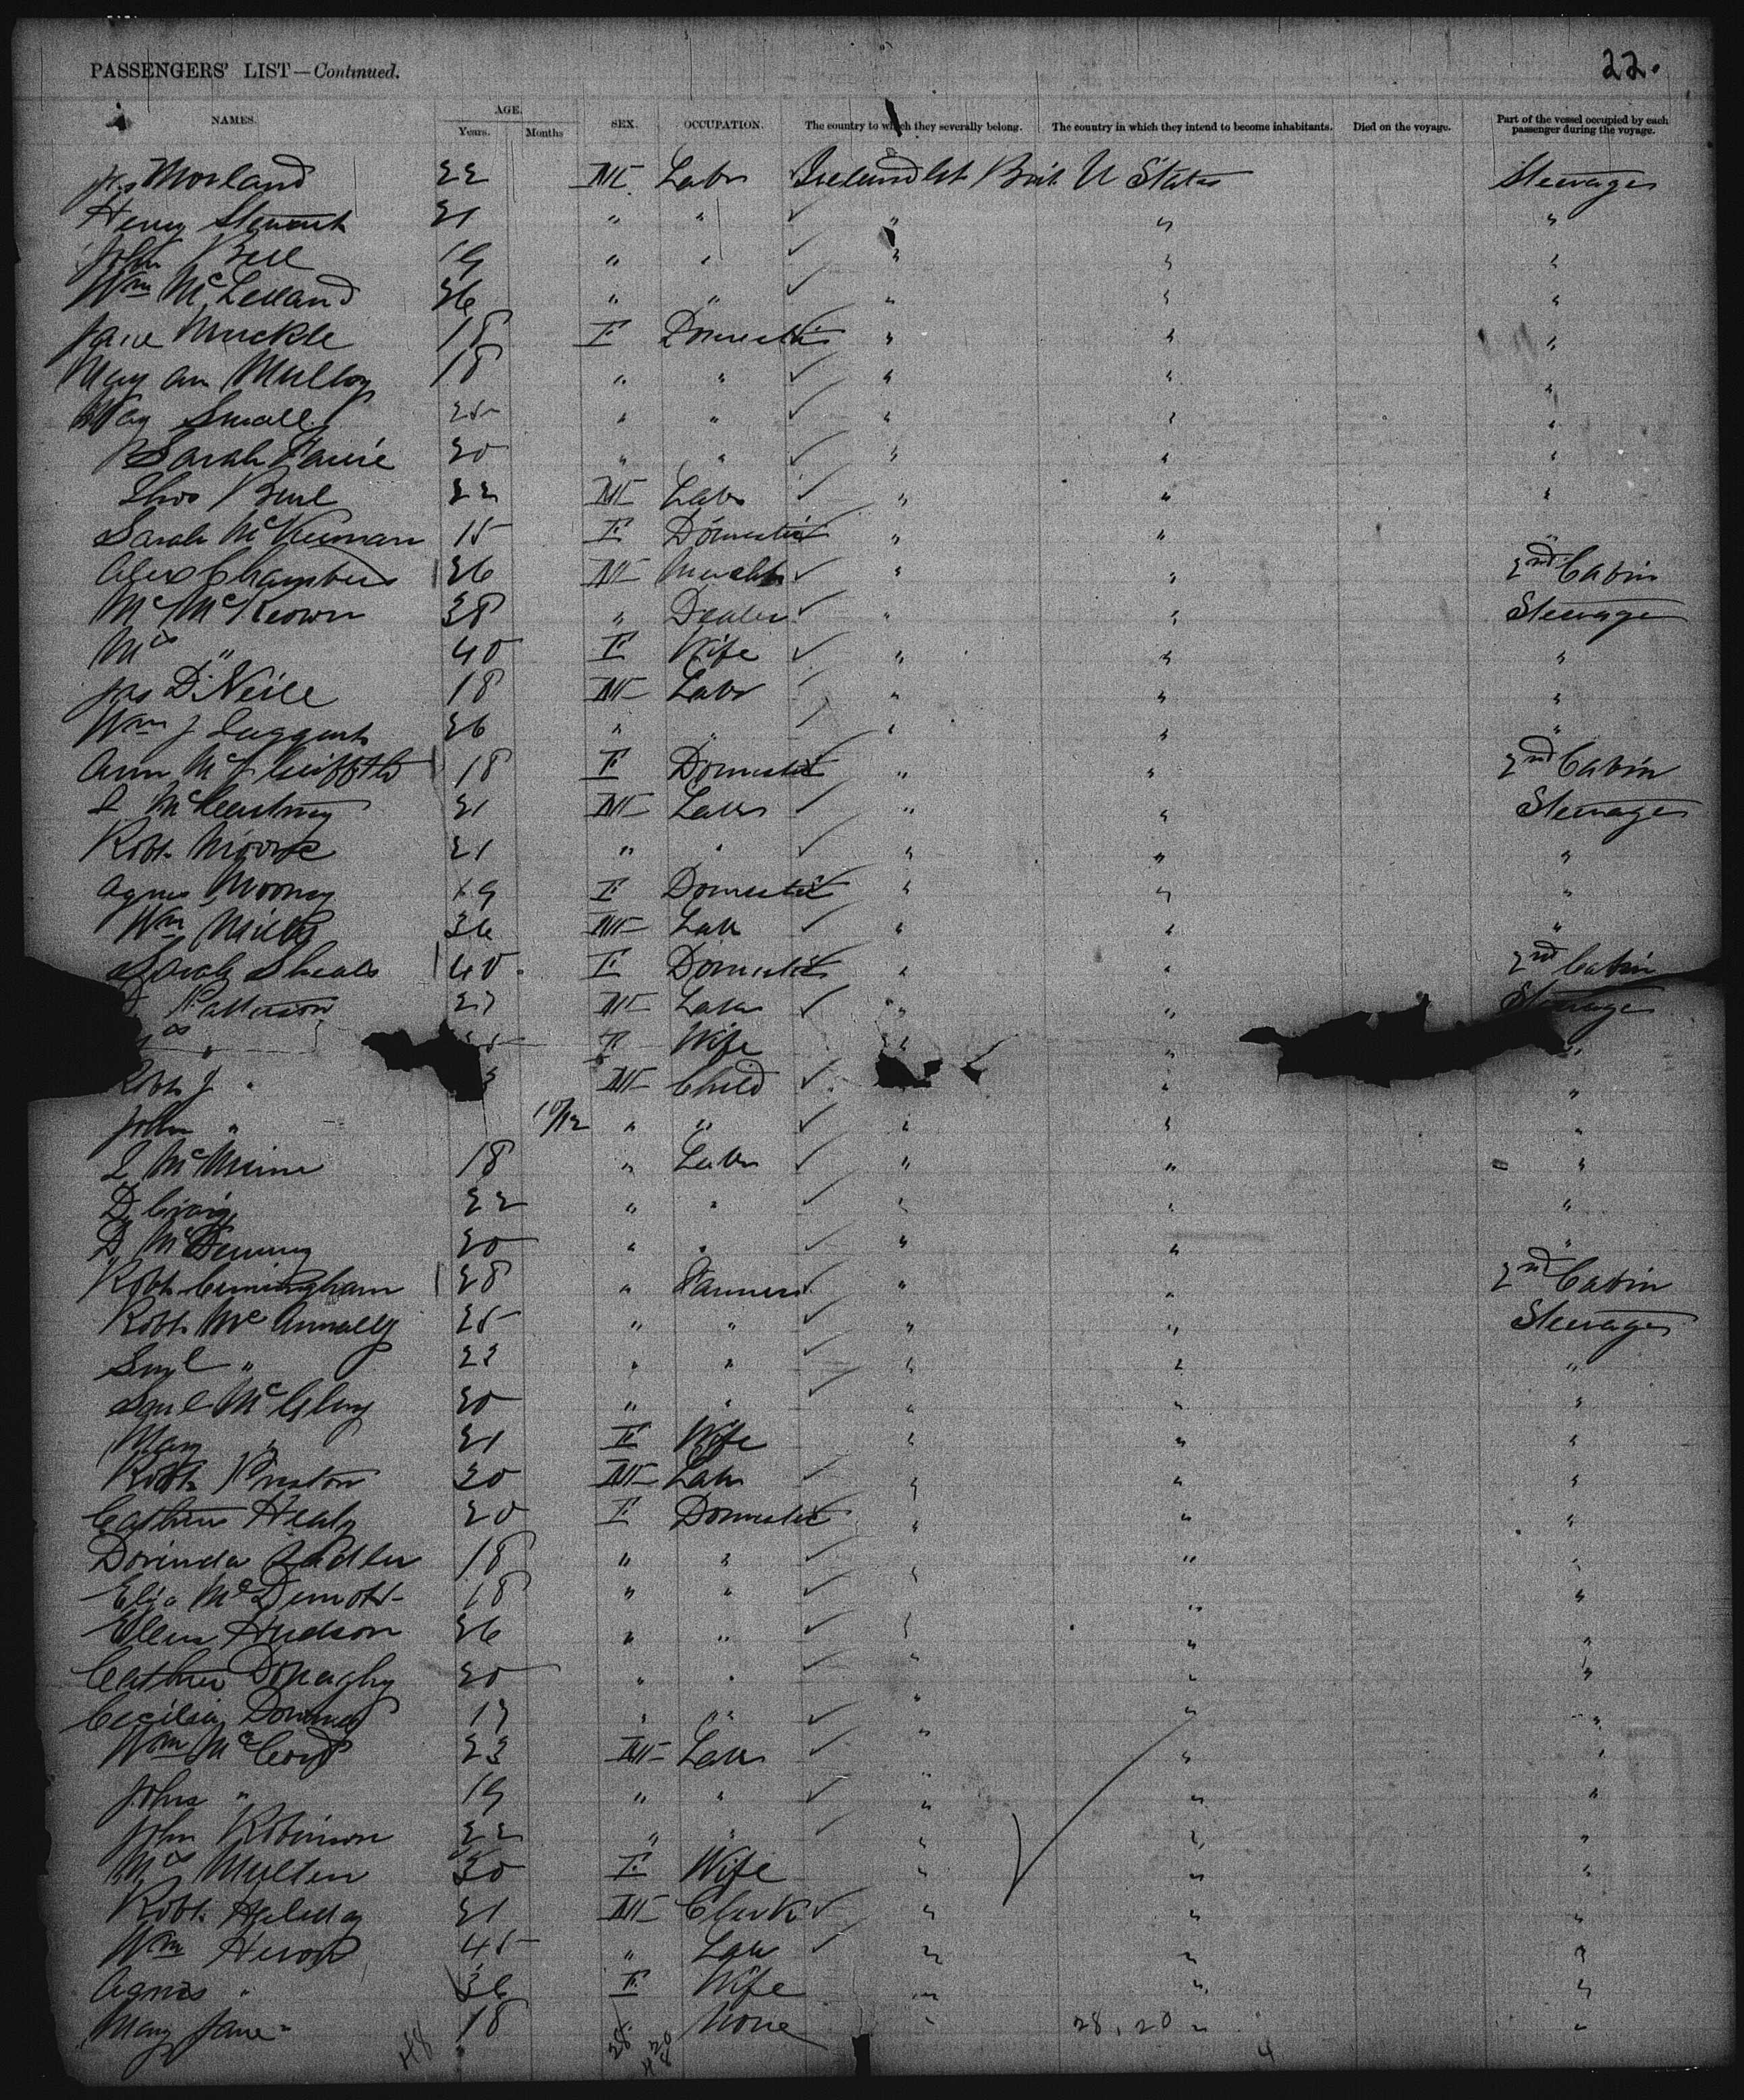 22.
PASSENGERS' LIST—Continued.
NAMES. AGE. Years. Months SEX. OCCUPATION. The country to which they severally belong. The country in which they intend to become inhabitants. Died on the voyage. Part of the vessel occupied by each passenger during the voyage.
Jas Morland 22 M Labr Ireland Gt Brit U States Steerage
Henry Stewart 21 " " " " "
John Bell 19 " " " " "
Wm McLelland 26 " " " " "
Jane Muckle 18 F Domestic " " "
Mary Ann Mulloy 18 " " " " "
May Small 25 " " " " "
Sarah 20 " " " " "
Thos 22 M Labr " " "
Sarah McKiernan 15 F Domestic " " "
Alex Chambers 26 M " " 2nd Cabin
Mr McKeown 38 " Dealer " " Steerage
Mrs " 40 F Wife " " "
Jas O'Neill 18 M Labr " " "
Wm J 26 " " " " "
Ann McJ Griffith 18 F Domestic " " 2nd Cabin
McCartney 21 M Labr " " Steerage
Robt Moore 21 " " " " "
Agnes Mooney 19 F Domestic " " "
Wm Mills 26 M Labr " " "
Sarah Sheals 40 F Domestic " " 2nd Cabin
Patterson 27 M Labr " " Steerage
" F Wife " " "
Robt J " 3 M Child " " "
John " 10/12 " " " " "
18 " Labr " " "
D Craig 22 " " " " "
D 20 " " " " "
Robt Cunningham 28 " Farmer " " 2nd Cabin
Robt McAnnally 25 " " " " Steerage
Saml " 22 " " " " "
Saml 20 " " " " "
Mary " 21 F Wife " " "
Robt Preston 20 M Labr " " "
Cathrin Healy 20 F Domestic " " "
Dorinda 18 " " " " "
Eliza McDermott 18 " " " " "
Ellen Hudson 26 " " " " "
Cathrin Donaghy 20 " " " " "
Cecilia 17 " " " " "
Wm McCord 23 M Labr " " "
John " 19 " " " " "
John Robinson 22 " " " " "
Mrs Mullen 30 F Wife " " "
Robt 21 M Clerk " " "
Wm Heron 45 " Labr " " "
Agnes " 36 F Wife " " "
Mary Jane " 18 " None " 28, 20 " "
48 28 20 48 4